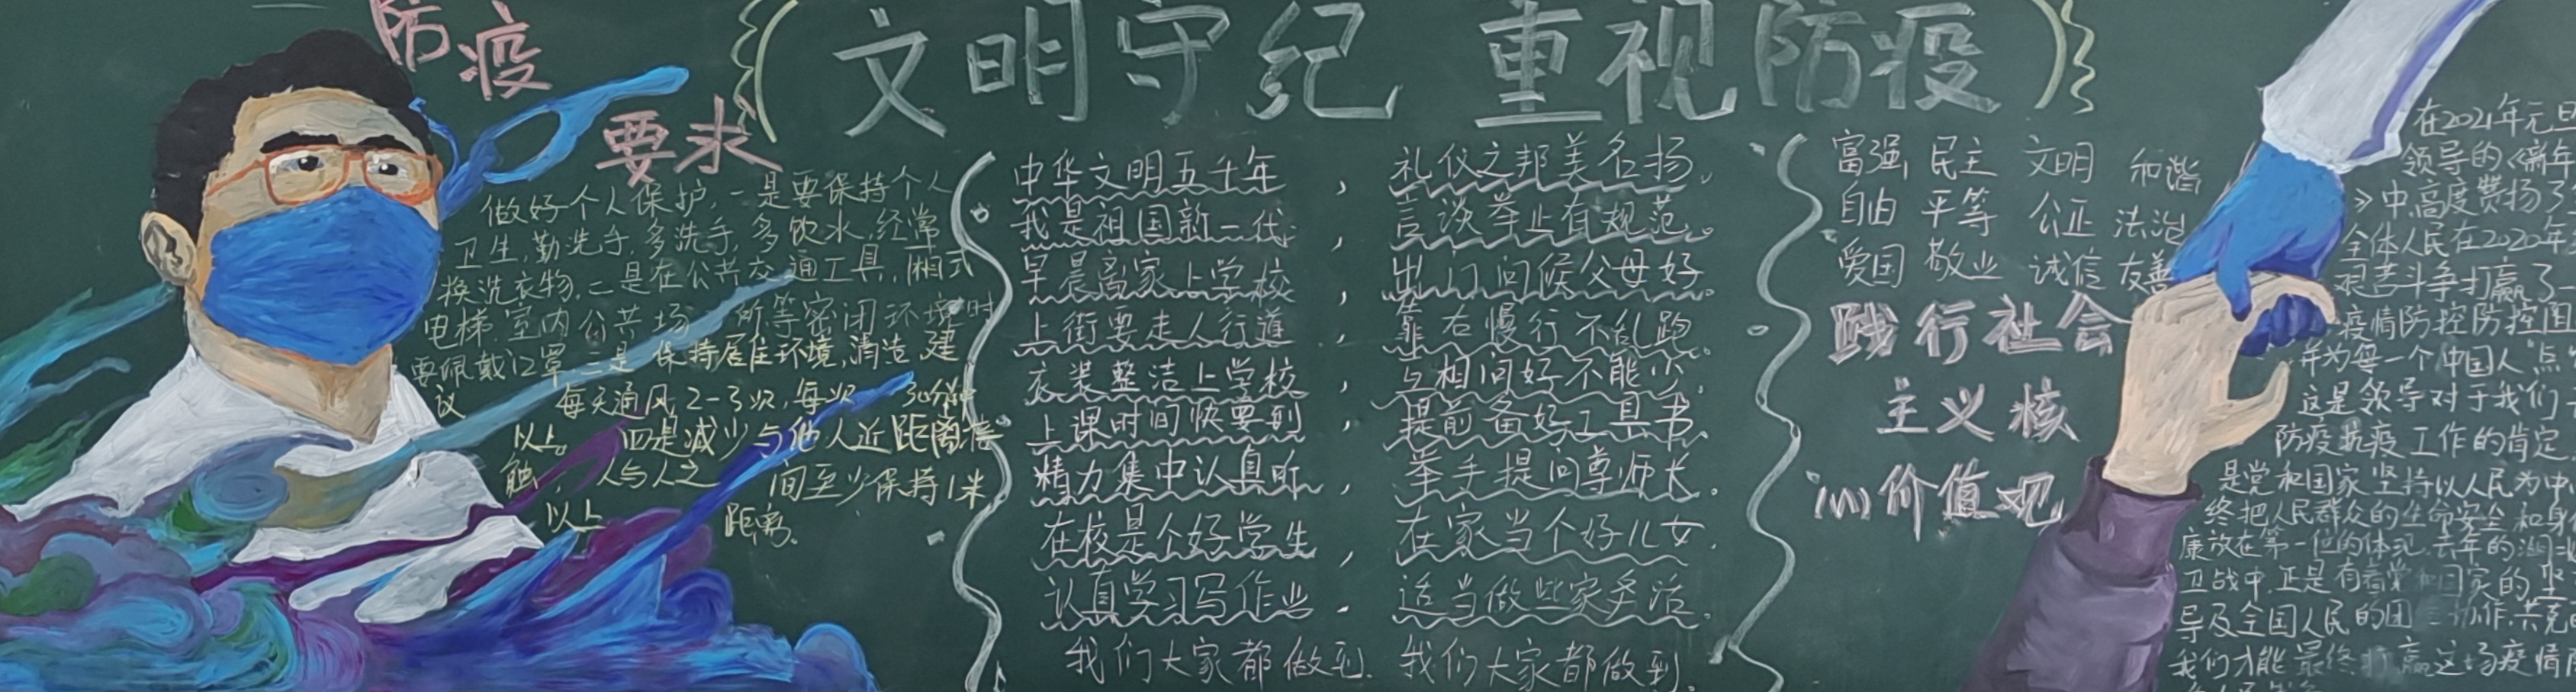 文明守纪 重视防疫
防疫
要求
做好个人保护,一是要保持个人
卫生,勤洗手,多洗手,多饮水,经常
换洗衣物,二是在公共交通工具,厢式
电梯.室内公共场所等密闭环境时
要佩戴口罩.三是保持居住环境,清洁,建
议 每天通风2-3次,每次 30分钟
以上。四是减少与他人近距离接
触,人与人之间至少保持1米
以上 距离。
中华文明五千年,礼仪之邦美名扬。
我是祖国新一代,言谈举止有规范。
早晨离家上学校,出门问候父母好。
上街要走人行道,靠右慢行不乱跑。
衣装整洁上学校,互相问好不能少。
上课时间快要到,提前备好工具书。
精力集中认真听,举手提问尊师长。
在校是个好学生,在家当个好儿女。
认真学习写作业,适当做些家务活。
我们大家都做到.我们大家都做到.
富强 民主 文明 和谐
自由 平等 公正 法治
爱国 敬业 诚信 友善
践行社会
主义核
心价值观
在2021年元旦
领导的《新年
》中,高度赞扬了
全体人民在2020年
艰苦斗争打赢了一
疫情防控防控阻
并为每一个中国人点
这是领导对于我们
防疫抗疫工作的肯定
是党和国家坚持以人民为中
终把人民群众的生命安全和身
康放在第一位的体现.去年的湖北
卫战中,正是有着党和国家的坚
导及全国人民的团 协作,共克
我们才能最终打赢这场疫情